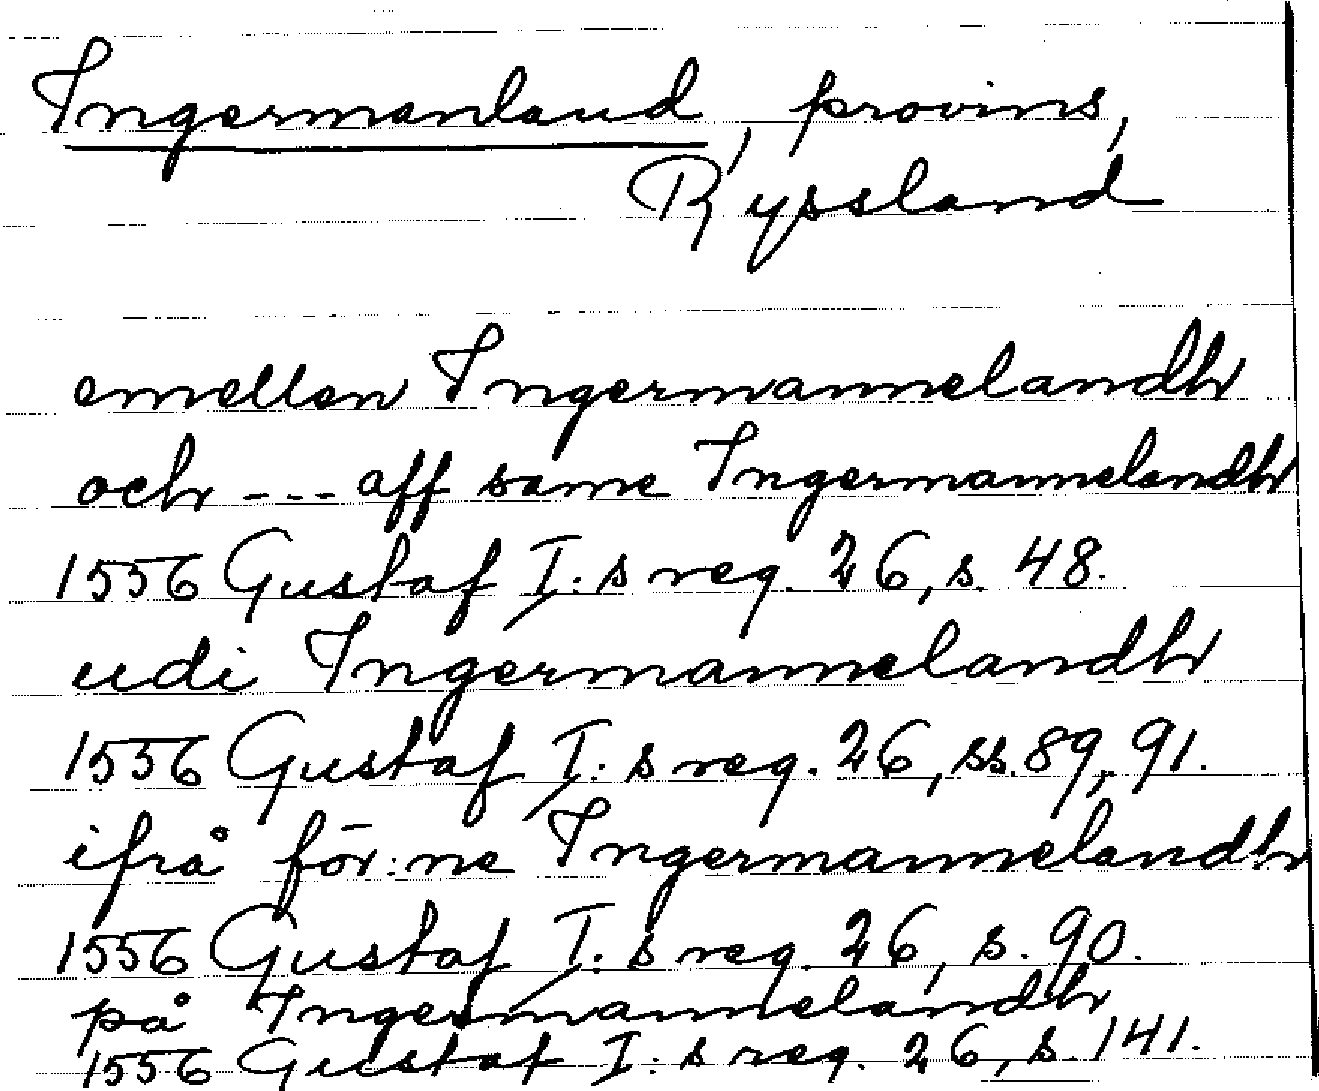 Ingermanland, provins,
Ryssland
emellen Ingermannelandh
och --- aff same Ingermannelandh
1556 Gustaf I:s reg. 26, s. 48.
udi Ingermannelandh
1556 Gustaf I:s reg. 26, ss. 89, 91.
ifrå för:ne Ingermannelandh
1556 Gustaf I:s reg. 26, s. 90.
på Ingermannelandh
1556 Gustaf I:s reg. 26, s. 141.